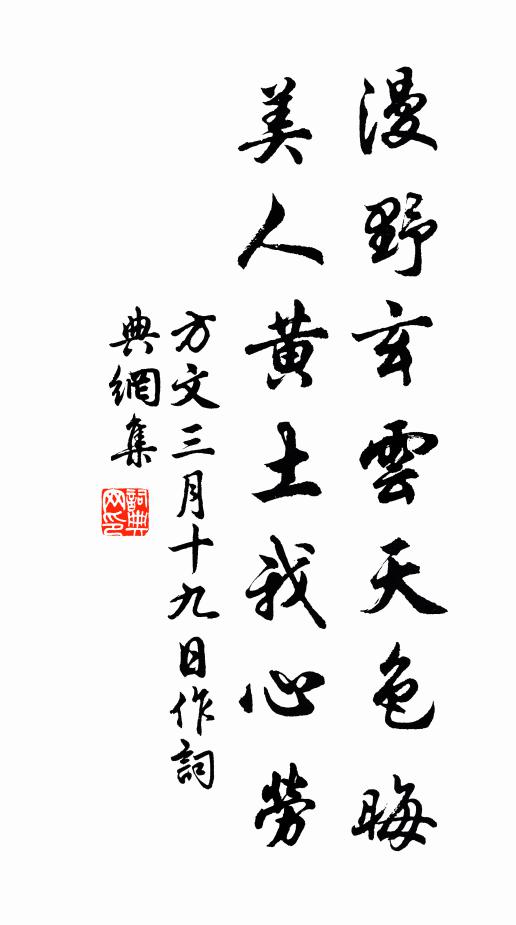 漫野玄雲天色晦
美人黄土我心勞
方文三月十九日作詞
典網集
詞典
网印